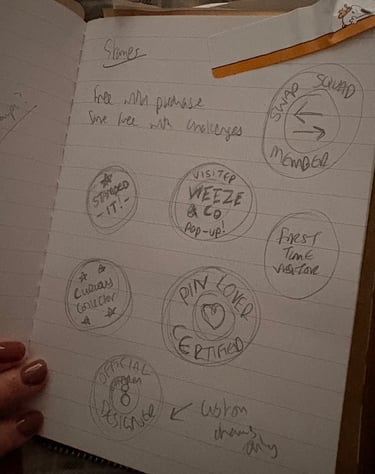 Stamps
Free with purchase
Some free with challenges
SWAP SQUAD
MEMBER
STAMPED
- IT! -
VISITED
WEEZE
& CO
POP-UP!
FIRST
TIME
VISITOR
CURIOUS
COLLECTOR
PIN LOVER
CERTIFIED
OFFICIAL
DESIGNER
custom
only